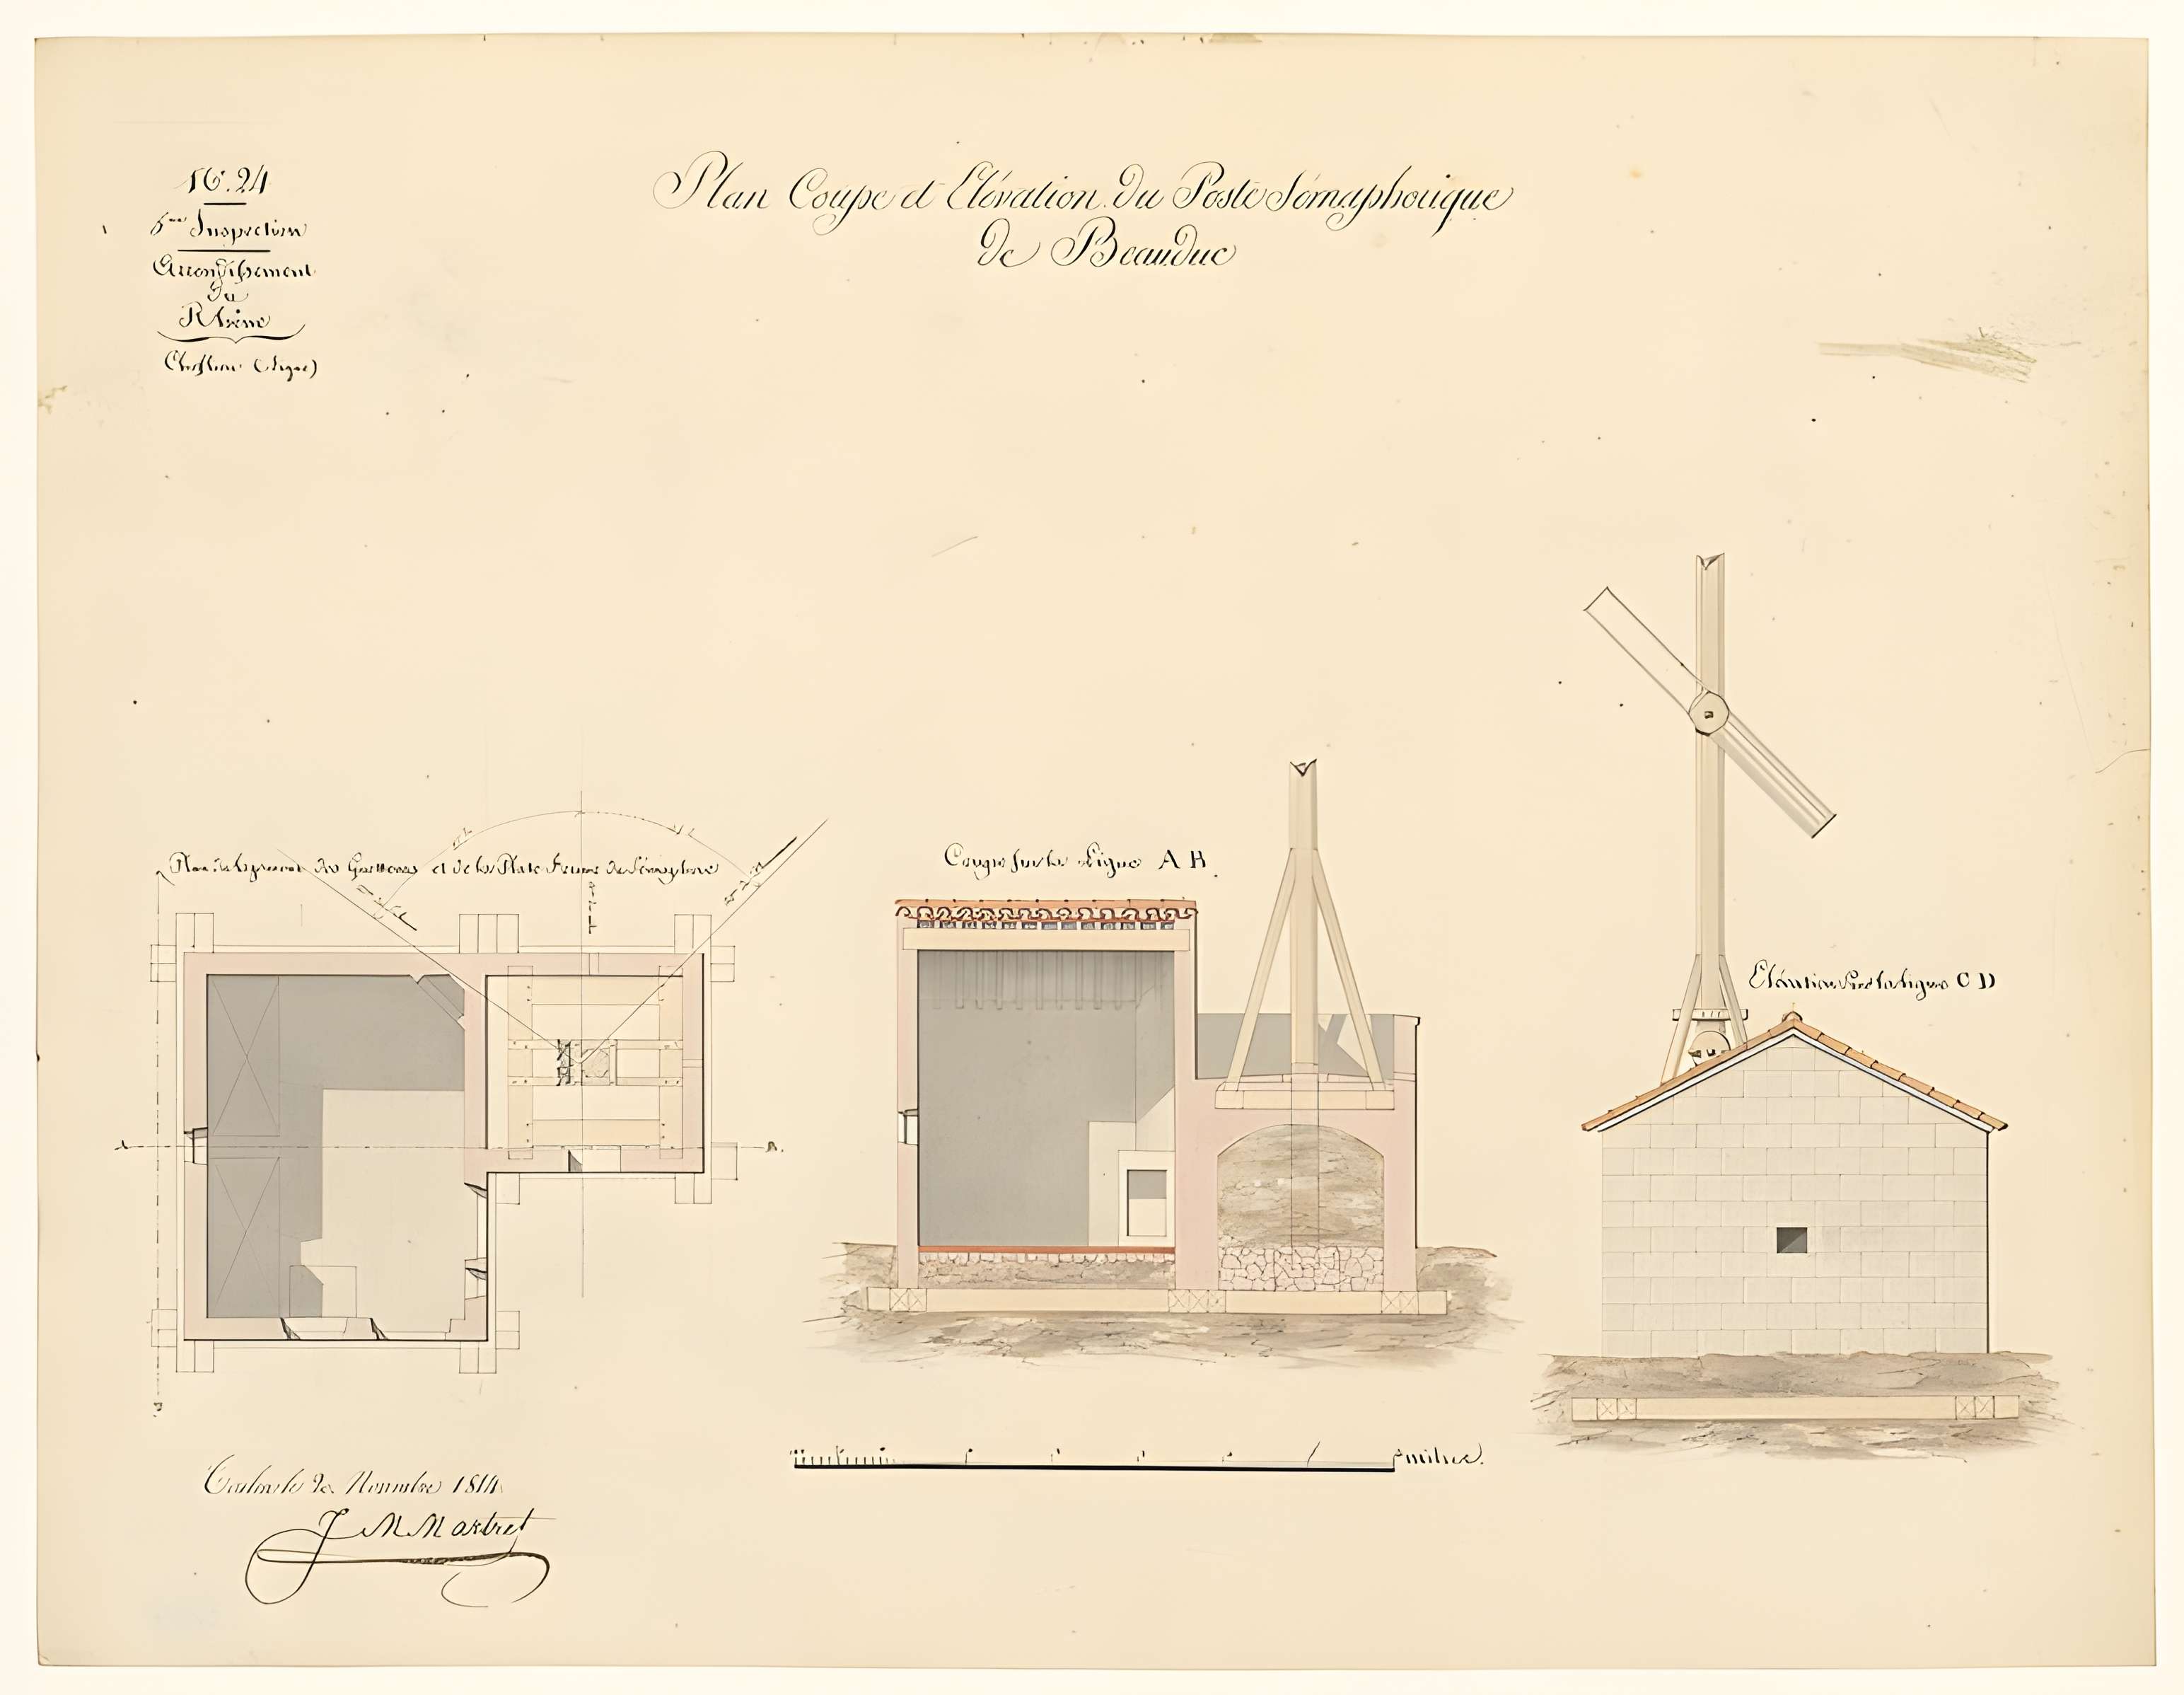 N.º 24
5.me Inspection
Arrondissement
du
Rhône
Plan Coupe et Elévation du Poste Sémaphorique
de Beauduc
Plan du logement des Guetteurs et de la Plate forme du Sémaphore
Coupe sur la Ligne A B
Elévation sur la ligne C D
Toulon le Novembre 1814
J M Martret